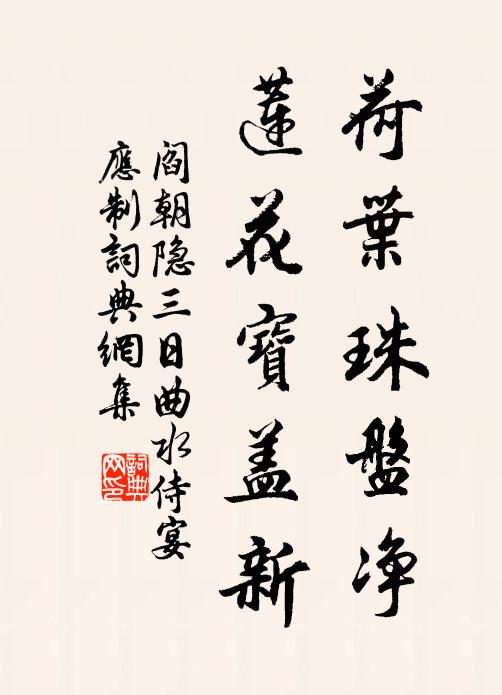 荷葉珠盤净
蓮花寶蓋新
閻朝隐三日曲水侍宴
應制詞典網集
詞典
网印